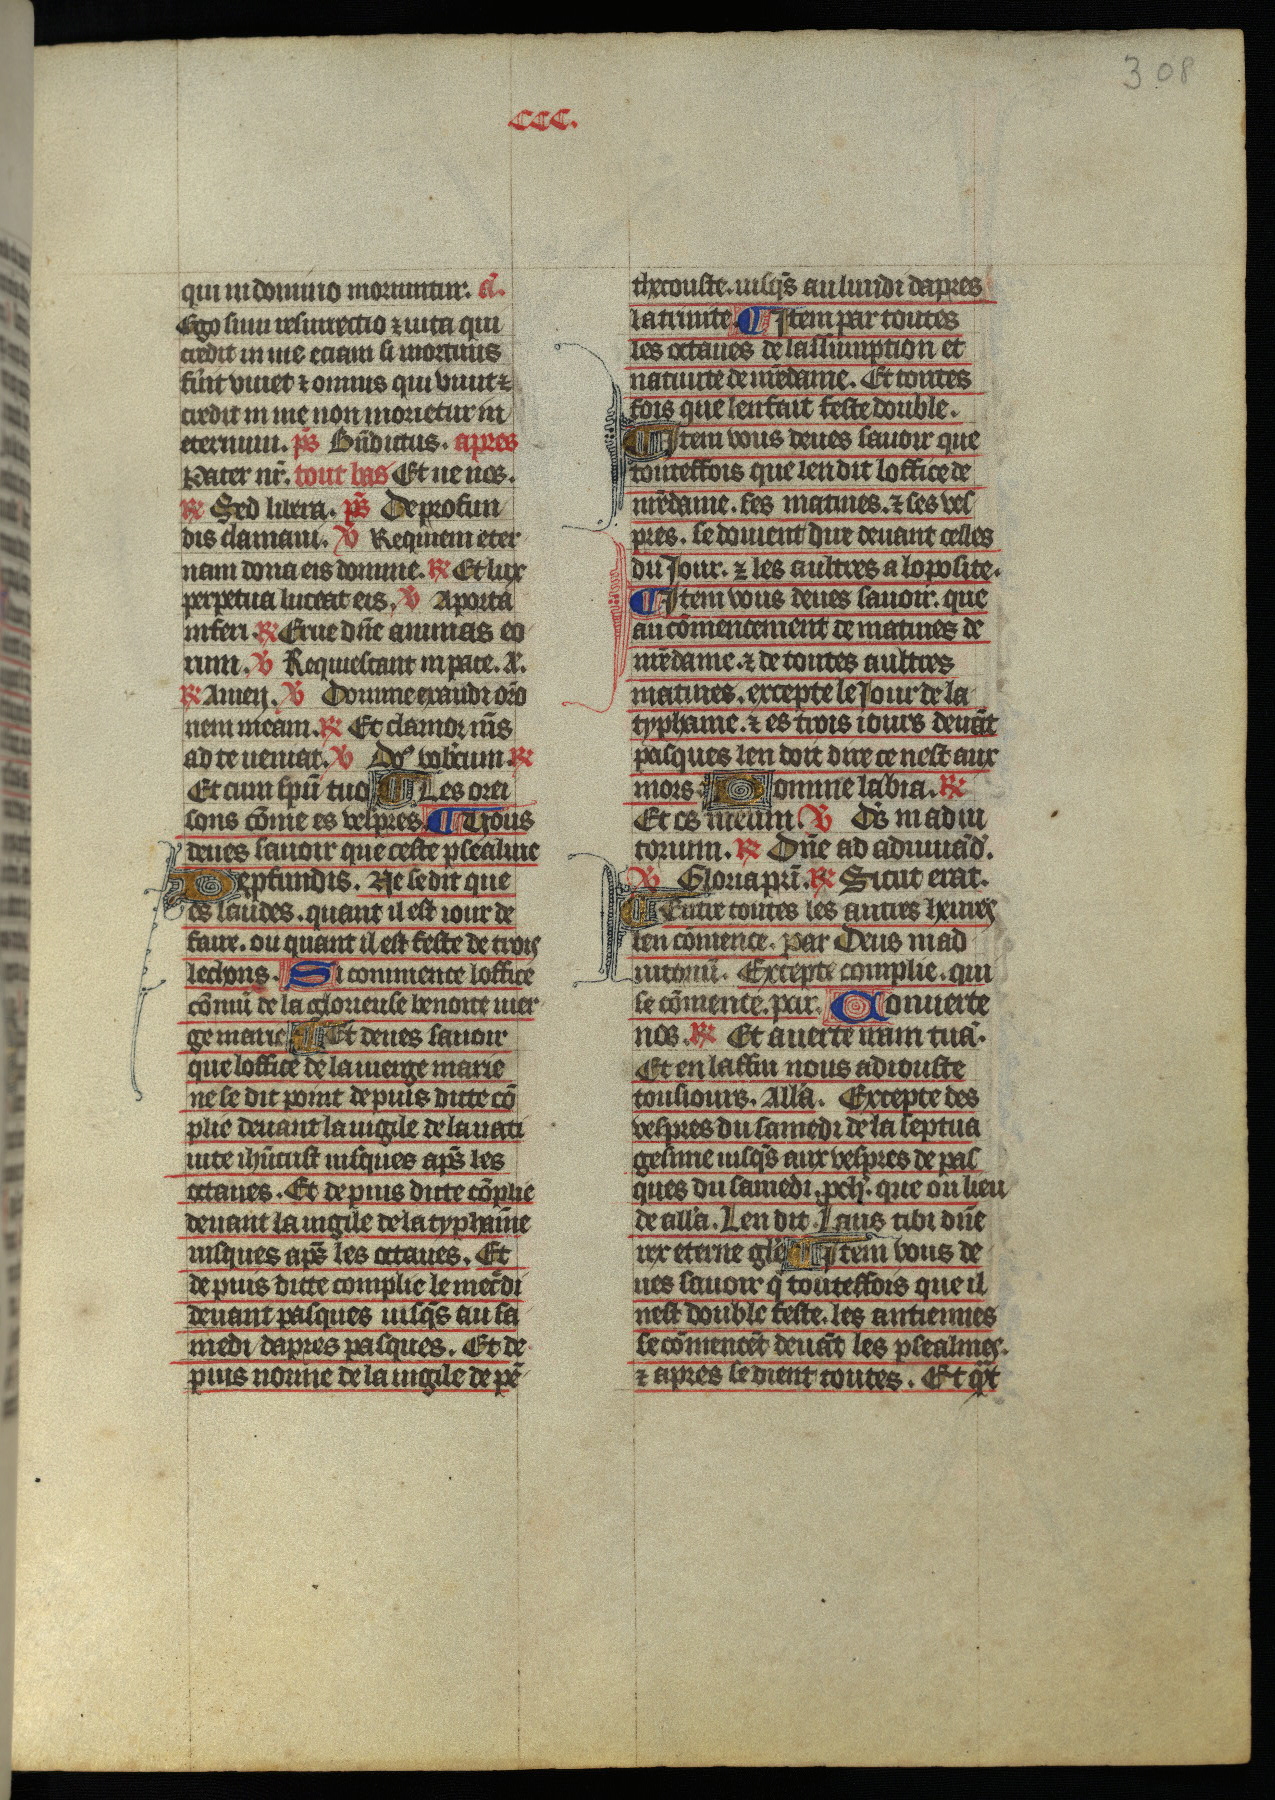 308
CCC.
qui in domino moriuntur. a̅.
Ego sum resurrectio ⁊ uita qui
credit in me eciam si mortuus
fu̅it viuet ⁊ omnis qui viuit ⁊
credit in me non morietur in
eternum. ps̅ Bn̅dictus. apres
Pater nr̅. tout bas Et ne nos.
℟ Sed libera. ps̅ De profun
dis clamaui. ℣ Requiem eter
nam dona eis domine. ℟ Et lux
perpetua luceat eis. ℣ A porta
inferi. ℟ Erue dn̅e animas eo
rum. ℣ Requiescant in pace.
℟ Amen. ℣ Domine exaudi or̅o
nem meam. ℟ Et clamor m̅s
ad te ueniat. ℣ Do̅s vob̅cum. ℟
Et cum sp̅u tuo ¶ Les orei
sons co̅me es vespres. ¶ Uous
deues sauoir que ceste psealme
De p̲fundis. Ne se dit que
es laudes. quant il est iour de
faire. ou quant il est feste de trois
lechons. Si commence loffice
co̅mu̅ de la glorieuse benoite uier
ge marie ¶ Et deues sauoir
que loffice de la uierge marie
ne se dit point de puis ditte co̅
plie deuant la uigile de la nati
uite ih̅ucrist iusques ap̅s les
octaues. Et de puis ditte co̅plie
deuant la uigile de la typhain̅e
iusques ap̅s les octaues. Et
de puis ditte complie le mec̅di
deuant pasques iusq̅s au sa
medi dapres pasques. Et de
puis nonne de la uigile de pe̅
thecouste. iusq̅s au lundi dapres
la trinite. ¶ Item par toutes
les octaues de lassumption et
natiuite de nr̅edame. Et toutes
fois que len fait feste double.
¶ Item vous deues sauoir que
touteffois que len dit loffice de
nr̅edame. ses matines. ⁊ ses ves
pres. se doiuent dire deuant celles
du Jour. ⁊ les aultres a loposite.
¶ Item vous deues sauoir. que
au co̅mencement de matines de
nr̅edame. ⁊ de toutes aultres
matines. excepte le Jour de la
typhaine. ⁊ es trois iours deua̅t
pasques len doit dire ce nest aux
mors. Domine labia. ℟
Et os meum. ℣ Ds̅ in adiu
torium. ℟ Dn̅e ad adiuua̅d̅.
℣ Gloria pr̅i. ℟ Sicut erat.
¶ Entre toutes les autres heures
len co̅mence. par Deus in ad
iutoriu̅. Excepte complie. qui
se co̅mence. par. Conuerte
nos. ℟ Et auerte iram tua̅.
Et en laffin nous adiouste
tousiours. All̅a. Excepte des
vespres du samedi de la septua
gesime iusq̅s aux vespres de pas
ques du samedi. que ou lieu
de all̅a. Len dit. Laus tibi dn̅e
rex eterne gl̅e ¶ Item vous de
ues sauoir q̅ touteffois que il
nest double feste. les antiennes
se co̅mence̅t deua̅t les psealmes.
⁊ apres se dient toutes. Et q̅t